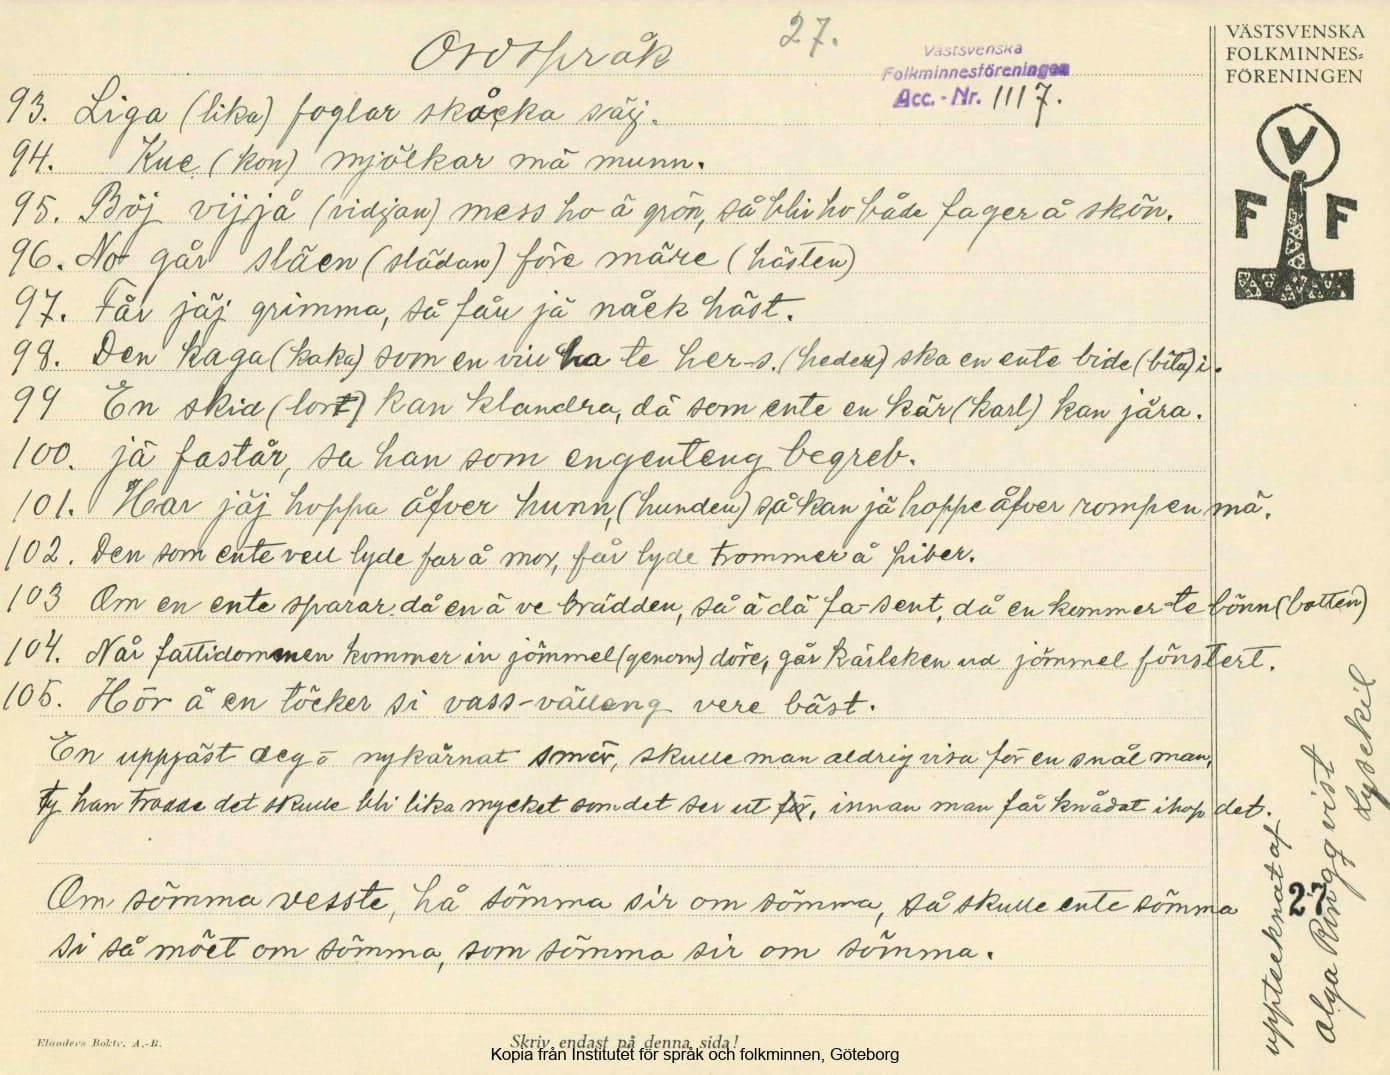 Ordspråk
27.
Västsvenska
Folkminnesföreningen
Acc.-Nr. 1117.
VÄSTSVENSKA
FOLKMINNES-
FÖRENINGEN
V
F F
93. Liga (lika) foglar skåcka säj.
94. Kue (kon) mjölkar mä munn.
95. Böj vijjå (vidjan) mess ho ä grön, så bliv ho både fager å skön.
96. No går släen (slädan) före märe (hästen)
97. Får jäj grimma, så får jä nåck häst.
98. Den kaga (kaka) som en viu ha te her-s. (heders) ska en ente bide (bita) i.
99 En skid (lort) kan klandra, dä som ente en kär (karl) kan jåra.
100. jä fastår, sa han som engenteng begreb.
101. Har jäj hoppa åfver hunn, (hunden) så kan jä hoppe åfver rompen mä.
102. Den som ente vell lyde far å mor, får lyde trommer å piber.
103 Om en ente sparar då en ä ve brädden, så ä dä fa-sent, då en kommer te bönn (botten)
104. Når fattidommen kommer in jömmel (genom) döre, går kärleken ud jömmel fönstert.
105. Hör å en töcker si vass-välleng vere bäst.
En uppjäst deg o nykärnat smör, skulle man aldrig visa för en snål man,
ty han trodde det skulle bli lika mycket som det ser ut för, innan man får knådat ihop det.
Om sömma vesste, hå sömma sir om sömma, så skulle ente sömma
si så möet om sömma, som sömma sir om sömma.
upptecknat af
Olga Ringqvist
Lysekil
27
Elanders Boktr. A.-B.
Skriv endast på denna sida!
Kopia från Institutet för språk och folkminnen, Göteborg